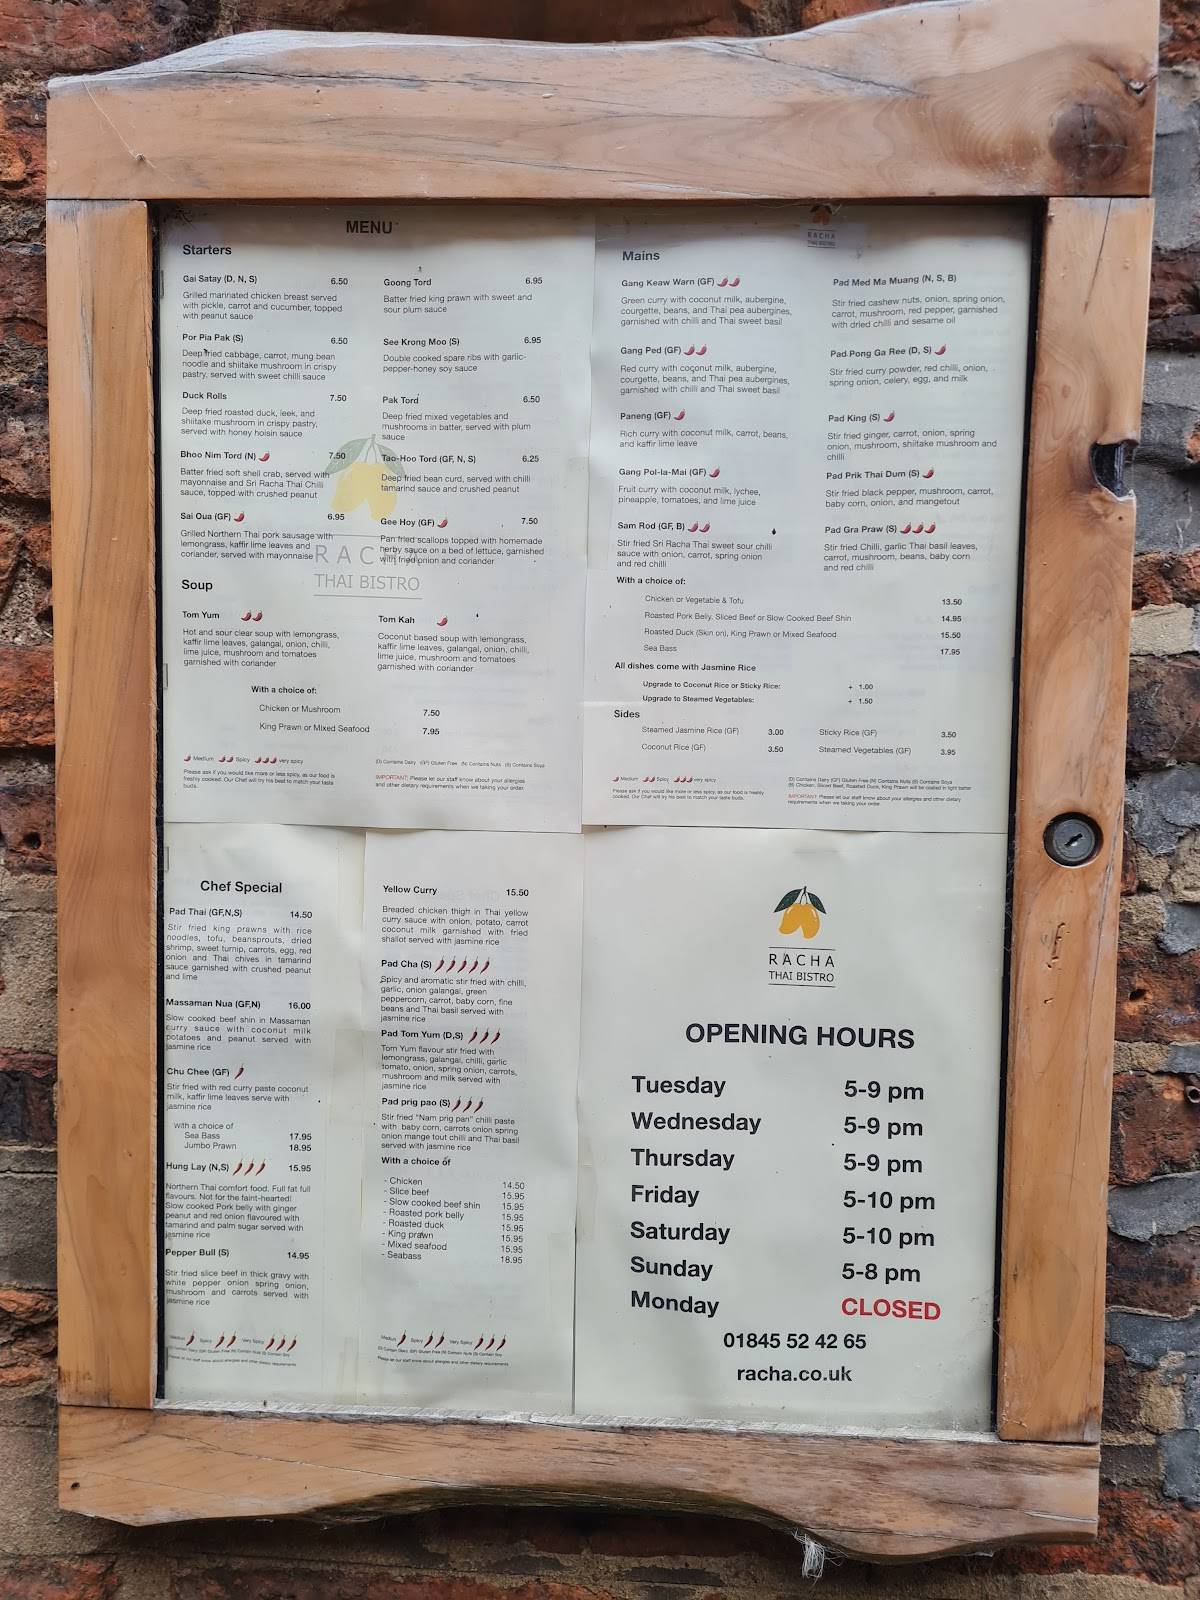 MENU
Starters
Gai Satay (D, N, S) 6.50
Grilled marinated chicken breast served
with pickle, carrot and cucumber, topped
with peanut sauce
Por Pia Pak (S) 6.50
Deep fried cabbage, carrot, mung bean
noodle and shiitake mushroom in crispy
pastry, served with sweet chilli sauce
Duck Rolls 7.50
Deep fried roasted duck, leek, and
shiitake mushroom in crispy pastry,
served with honey hoisin sauce
Bhoo Nim Tord (N) 7.50
Batter fried soft shell crab, served with
mayonnaise and Sri Racha Thai Chilli
sauce, topped with crushed peanut
Sai Oua (GF) 6.95
Grilled Northern Thai pork sausage with
lemongrass, kaffir lime leaves and
coriander, served with mayonnaise
Goong Tord 6.95
Batter fried king prawn with sweet and
sour plum sauce
See Krong Moo (S) 6.95
Double cooked spare ribs with garlic-
pepper-honey soy sauce
Pak Tord 6.50
Deep fried mixed vegetables and
mushrooms in batter, served with plum
sauce
Tao-Hoo Tord (GF, N, S) 6.25
Deep fried bean curd, served with chilli
tamarind sauce and crushed peanut
Gee Hoy (GF) 7.50
Pan fried scallops topped with homemade
herby sauce on a bed of lettuce, garnished
with fried onion and coriander
RACHA
THAI BISTRO
Soup
Tom Yum
Hot and sour clear soup with lemongrass,
kaffir lime leaves, galangal, onion, chilli,
lime juice, mushroom and tomatoes
garnished with coriander
Tom Kah
Coconut based soup with lemongrass,
kaffir lime leaves, galangal, onion, chilli,
lime juice, mushroom and tomatoes
garnished with coriander
With a choice of:
Chicken or Mushroom 7.50
King Prawn or Mixed Seafood 7.95
Medium Spicy very spicy
Please ask if you would like more or less spicy, as our food is
freshly cooked. Our Chef will try his best to match your taste
buds.
(D) Contains Dairy (GF) Gluten Free (N) Contains Nuts (S) Contains Soya
IMPORTANT: Please let our staff know about your allergies
and other dietary requirements when we taking your order.
RACHA
THAI BISTRO
Mains
Gang Keaw Warn (GF)
Green curry with coconut milk, aubergine,
courgette, beans, and Thai pea aubergines,
garnished with chilli and Thai sweet basil
Gang Ped (GF)
Red curry with coconut milk, aubergine,
courgette, beans, and Thai pea aubergines,
garnished with chilli and Thai sweet basil
Paneng (GF)
Rich curry with coconut milk, carrot, beans,
and kaffir lime leave
Gang Pol-la-Mai (GF)
Fruit curry with coconut milk, lychee,
pineapple, tomatoes, and lime juice
Sam Rod (GF, B)
Stir fried Sri Racha Thai sweet sour chilli
sauce with onion, carrot, spring onion
and red chilli
Pad Med Ma Muang (N, S, B)
Stir fried cashew nuts, onion, spring onion,
carrot, mushroom, red pepper, garnished
with dried chilli and sesame oil
Pad Pong Ga Ree (D, S)
Stir fried curry powder, red chilli, onion,
spring onion, celery, egg, and milk
Pad King (S)
Stir fried ginger, carrot, onion, spring
onion, mushroom, shiitake mushroom and
chilli
Pad Prik Thai Dum (S)
Stir fried black pepper, mushroom, carrot,
baby corn, onion, and mangetout
Pad Gra Praw (S)
Stir fried Chilli, garlic Thai basil leaves,
carrot, mushroom, beans, baby corn
and red chilli
With a choice of:
Chicken or Vegetable & Tofu 13.50
Roasted Pork Belly, Sliced Beef or Slow Cooked Beef Shin 14.95
Roasted Duck (Skin on), King Prawn or Mixed Seafood 15.50
Sea Bass 17.95
All dishes come with Jasmine Rice
Upgrade to Coconut Rice or Sticky Rice: + 1.00
Upgrade to Steamed Vegetables: + 1.50
Sides
Steamed Jasmine Rice (GF) 3.00
Coconut Rice (GF) 3.50
Sticky Rice (GF) 3.50
Steamed Vegetables (GF) 3.95
Medium Spicy very spicy
Please ask if you would like more or less spicy, as our food is freshly
cooked. Our Chef will try his best to match your taste buds.
(D) Contains Dairy (GF) Gluten Free (N) Contains Nuts (S) Contains Soya
(B) Chicken, Sliced Beef, Roasted Duck, King Prawn will be coated in light batter
IMPORTANT: Please let our staff know about your allergies and other dietary
requirements when we taking your order.
Chef Special
Pad Thai (GF,N,S) 14.50
Stir fried king prawns with rice
noodles, tofu, beansprouts, dried
shrimp, sweet turnip, carrots, egg, red
onion and Thai chives in tamarind
sauce garnished with crushed peanut
and lime
Massaman Nua (GF,N) 16.00
Slow cooked beef shin in Massaman
curry sauce with coconut milk
potatoes and peanut served with
jasmine rice
Chu Chee (GF)
Stir fried with red curry paste coconut
milk, kaffir lime leaves serve with
jasmine rice
with a choice of
Sea Bass 17.95
Jumbo Prawn 18.95
Hung Lay (N,S) 15.95
Northern Thai comfort food. Full fat full
flavours. Not for the faint-hearted!
Slow cooked Pork belly with ginger
peanut and red onion flavoured with
tamarind and palm sugar served with
jasmine rice
Pepper Bull (S) 14.95
Stir fried slice beef in thick gravy with
white pepper onion spring onion,
mushroom and carrots served with
jasmine rice
Medium Spicy Very Spicy
Please let our staff know about allergies and other dietary requirements
Yellow Curry 15.50
Breaded chicken thigh in Thai yellow
curry sauce with onion, potato, carrot
coconut milk garnished with fried
shallot served with jasmine rice
Pad Cha (S)
Spicy and aromatic stir fried with chilli,
garlic, onion galangal, green
peppercorn, carrot, baby corn, fine
beans and Thai basil served with
jasmine rice
Pad Tom Yum (D,S)
Tom Yum flavour stir fried with
lemongrass, galangal, chilli, garlic
tomato, onion, spring onion, carrots,
mushroom and milk served with
jasmine rice
Pad prig pao (S)
Stir fried "Nam prig pan" chilli paste
with baby corn, carrots onion spring
onion mange tout chilli and Thai basil
served with jasmine rice
With a choice of
- Chicken 14.50
- Slice beef 15.95
- Slow cooked beef shin 15.95
- Roasted pork belly 15.95
- Roasted duck 15.95
- King prawn 15.95
- Mixed seafood 15.95
- Seabass 18.95
Medium Spicy Very Spicy
Please let our staff know about allergies and other dietary requirements
RACHA
THAI BISTRO
OPENING HOURS
Tuesday 5-9 pm
Wednesday 5-9 pm
Thursday 5-9 pm
Friday 5-10 pm
Saturday 5-10 pm
Sunday 5-8 pm
Monday CLOSED
01845 52 42 65
racha.co.uk